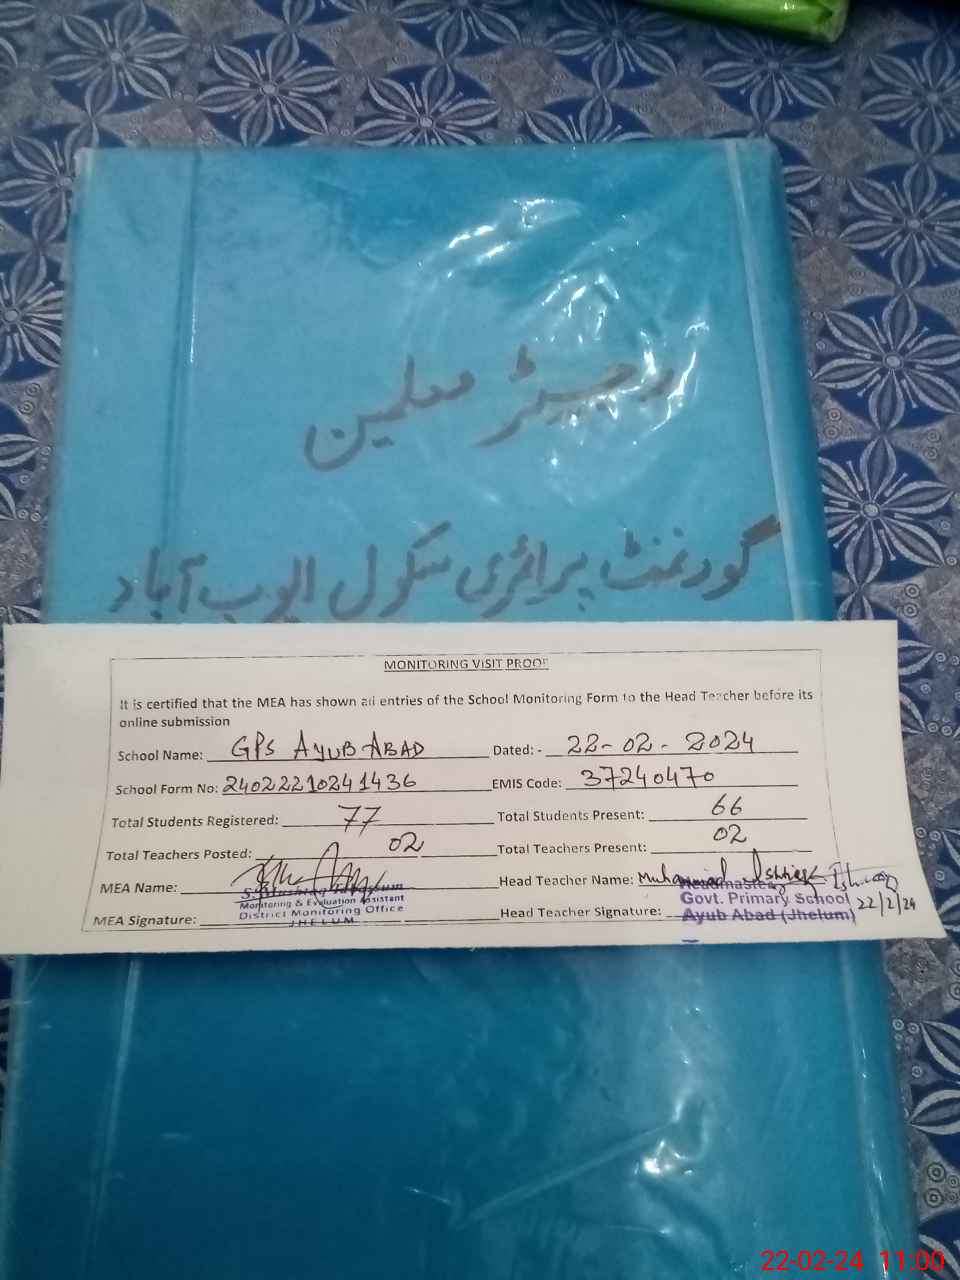 رجسٹر معلمین
گورنمنٹ پرائمری سکول ایوب آباد
MONITORING VISIT PROOF
It is certified that the MEA has shown all entries of the School Monitoring Form to the Head Teacher before its
online submission
School Name: GPS AYUB ABAD Dated: - 22-02-2024
School Form No: 2402221024 1436 EMIS Code: 37240470
Total Students Registered: 77 Total Students Present: 66
Total Teachers Posted: 02 Total Teachers Present: 02
MEA Name: Head Teacher Name: Muhammad Ishtiaq
Monitoring & Evaluation Assistant
District Monitoring Office
JHELUM
MEA Signature: Head Teacher Signature:
Headmaster
Govt. Primary School 22/2/24
Ayub Abad (Jhelum)
22-02-24 11:00